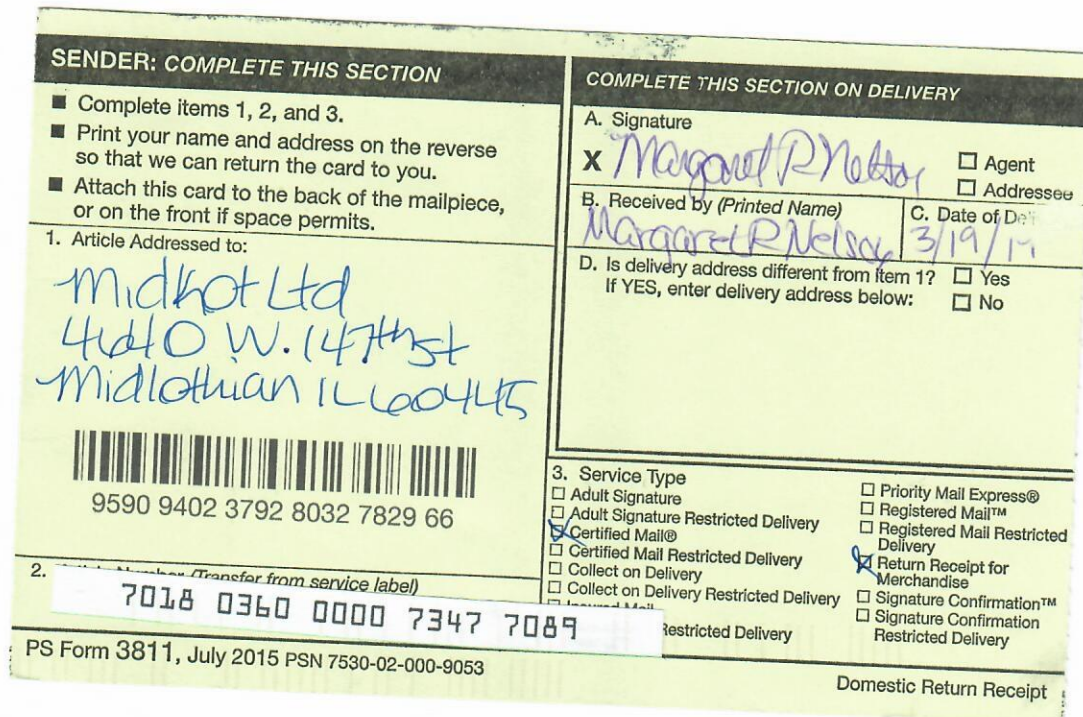 SENDER: COMPLETE THIS SECTION
■ Complete items 1, 2, and 3.
■ Print your name and address on the reverse
so that we can return the card to you.
■ Attach this card to the back of the mailpiece,
or on the front if space permits.
1. Article Addressed to:
Midkot Ltd
4640 W. 147th st
Midlothian IL 60445
9590 9402 3792 8032 7829 66
2. (Transfer from service label)
7018 0360 0000 7347 7089
PS Form 3811, July 2015 PSN 7530-02-000-9053
COMPLETE THIS SECTION ON DELIVERY
A. Signature
X Margaret R Nelson
☐ Agent
☐ Addressee
B. Received by (Printed Name)
Margaret R Nelson
C. Date of
3/19/19
D. Is delivery address different from item 1? ☐ Yes
If YES, enter delivery address below: ☐ No
3. Service Type
☐ Adult Signature
☐ Adult Signature Restricted Delivery
☒ Certified Mail®
☐ Certified Mail Restricted Delivery
☐ Collect on Delivery
☐ Collect on Delivery Restricted Delivery
Restricted Delivery
☐ Priority Mail Express®
☐ Registered Mail™
☐ Registered Mail Restricted
Delivery
☒ Return Receipt for
Merchandise
☐ Signature Confirmation™
☐ Signature Confirmation
Restricted Delivery
Domestic Return Receipt